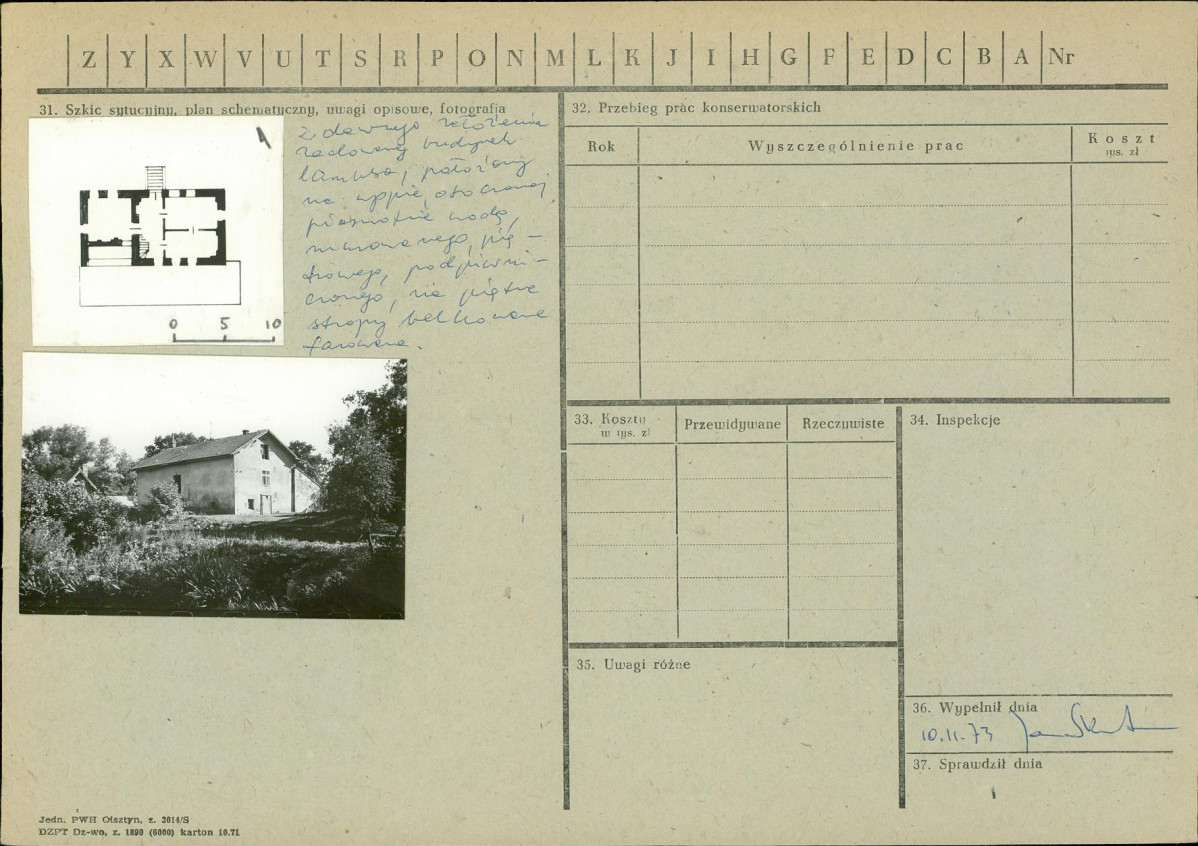 Z Y X W V U T S R P O N M L K J I H G F E D C B A Nr
31. Szkic sytucyjny, plan schematyczny, uwagi opisowe, fotografia
Z dawnego założenia
zachowany budynek
lamusa, położony
na kępie, otoczonej
pierwotnie wodą,
murowanego, pię-
trowego, podpiwni-
czonego, na piętrze
stropy belkowane
fazowane.
0 5 10
32. Przebieg prac konserwatorskich
Rok
Wyszczególnienie prac
Koszt
tys. zł
33. Koszty
w tys. zł
Przewidywane
Rzeczywiste
34. Inspekcje
35. Uwagi różne
36. Wypełnił dnia
10.11.73
37. Sprawdził dnia
Jedn. PWH Olsztyn, z. 3014/S
DZPT Dz-wo, z. 1890 (6000) karton 10.71